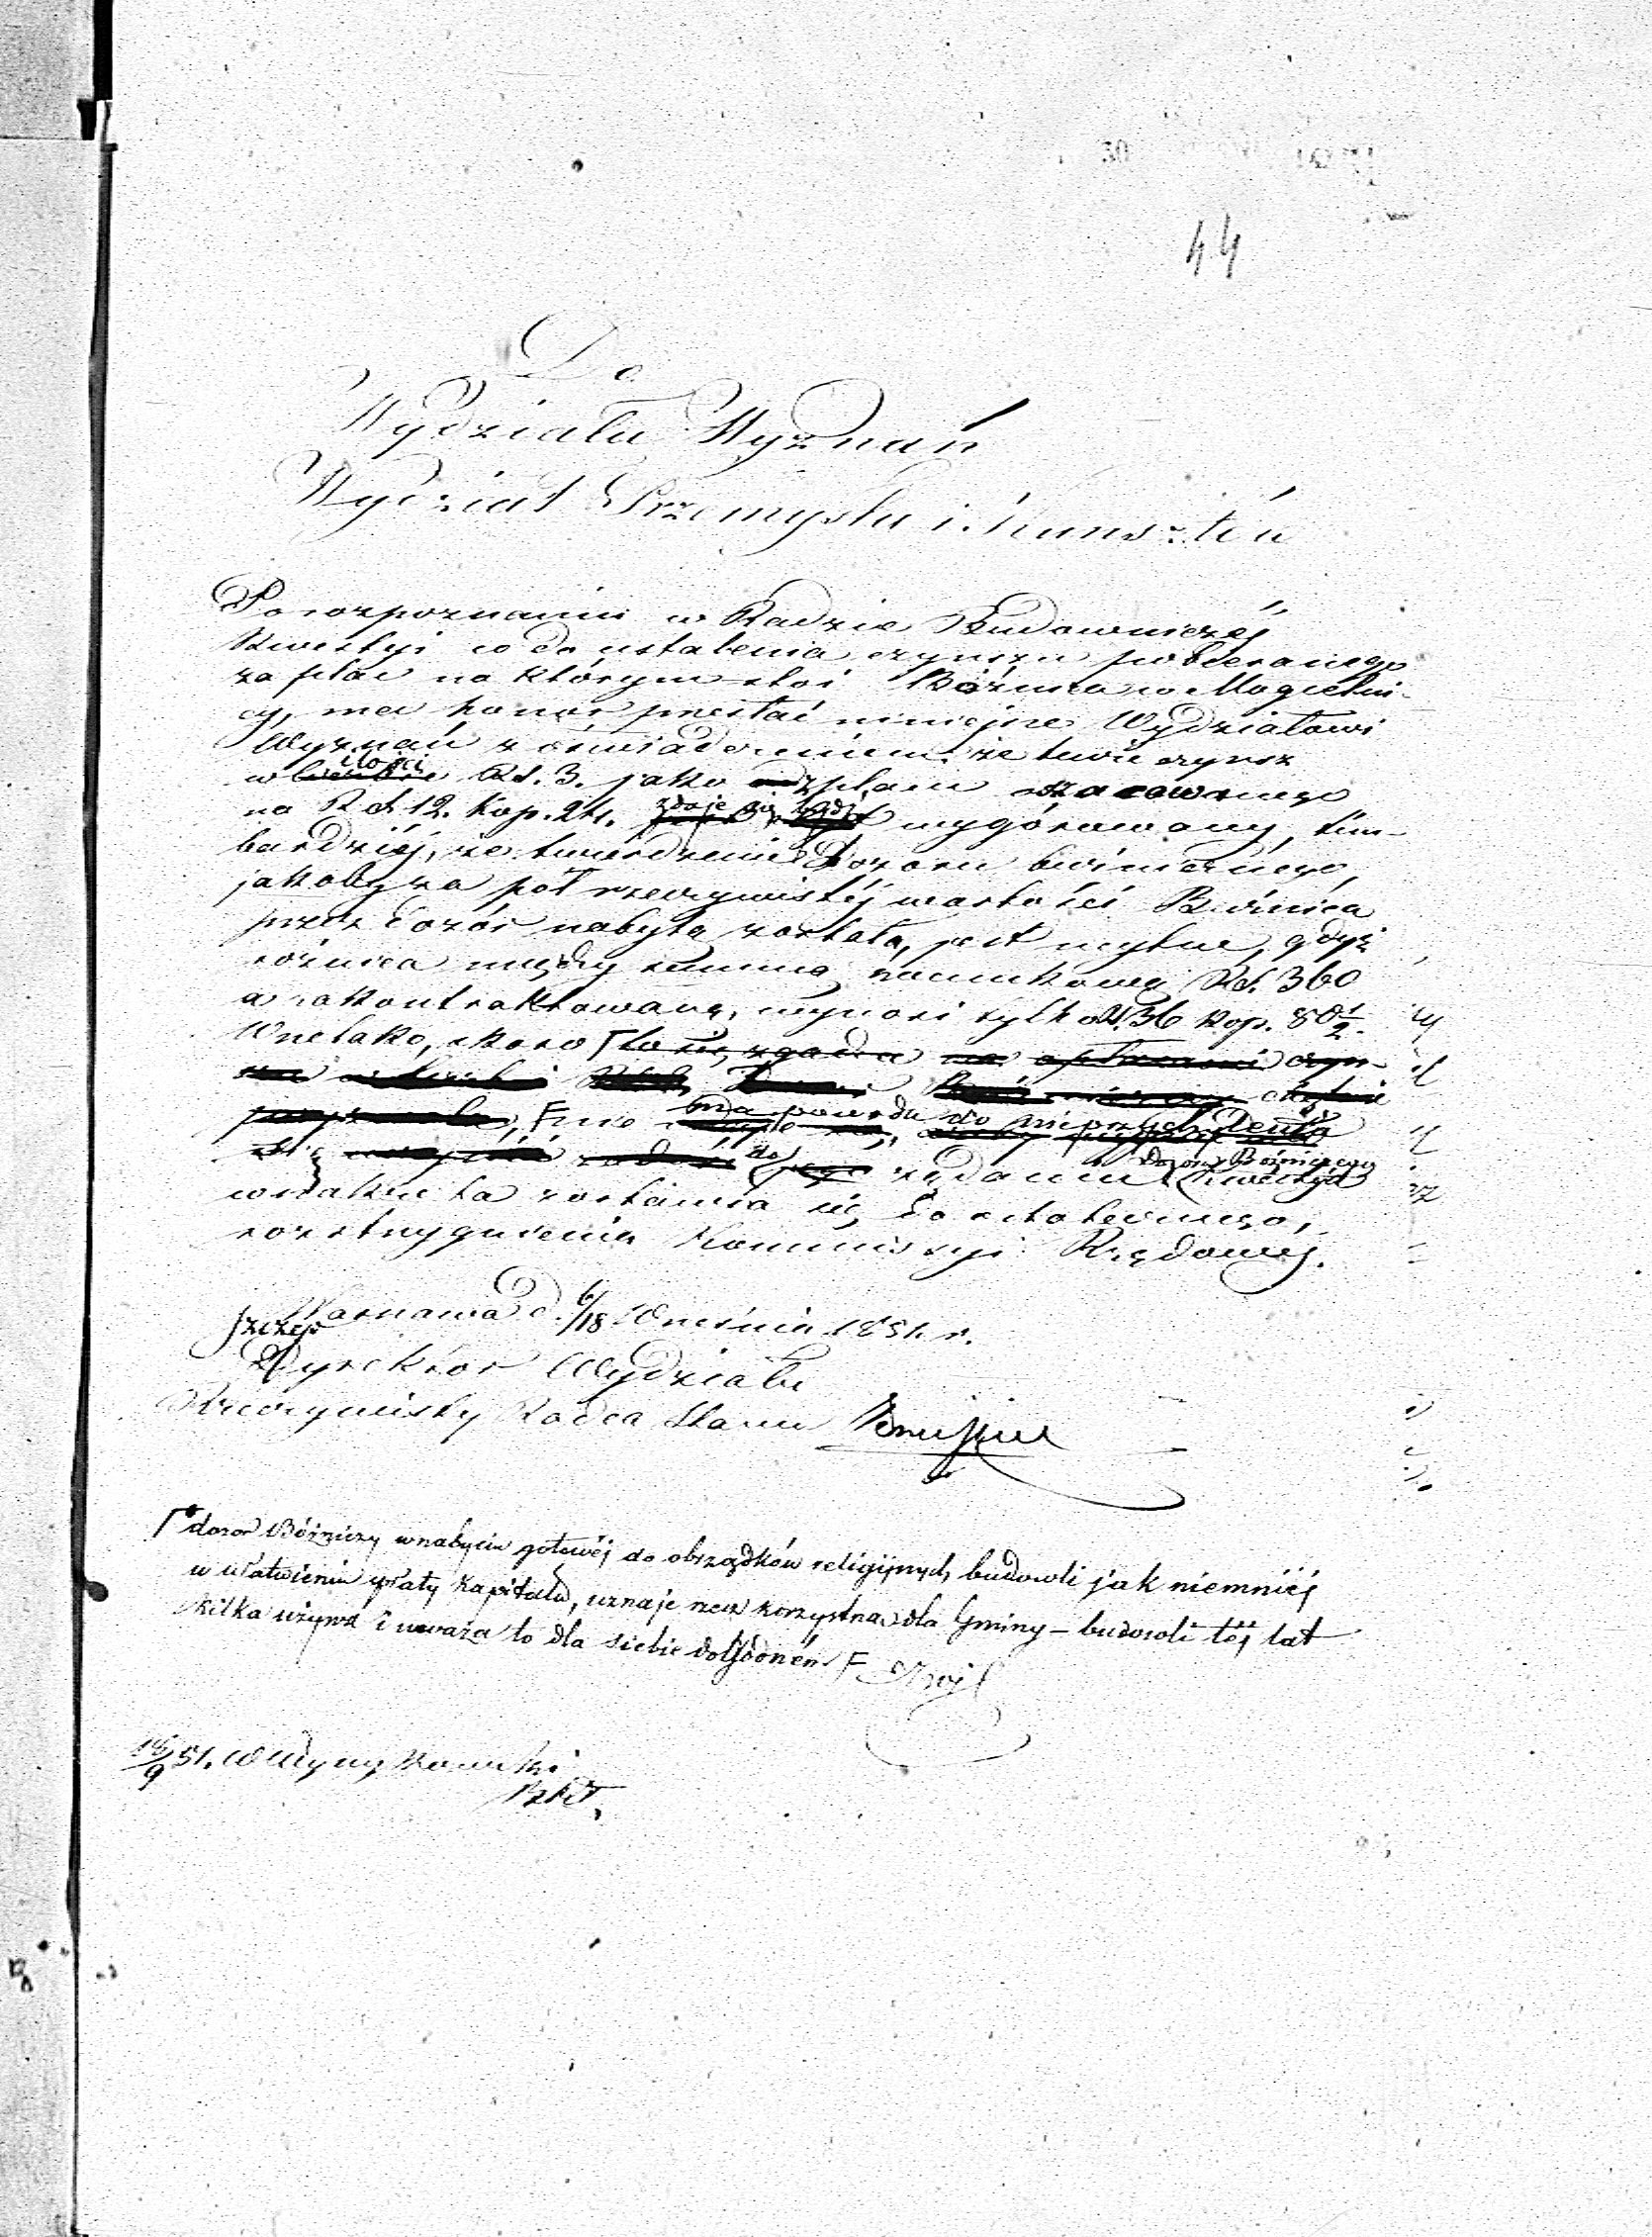 44
Do
Wydziału Wyznań
Wydział Przemysłu i Kunsztów
Po rozpoznaniu w Radzie Budowniczéj
Kwestyi co do ustalenia czynszu pobieranego
za plac na którym stoi Bóżnica w Mogielni-
cy, ma honor przesłać niniejsze Wydziałowi
Wyznań z oświadczeniem że tenże czynsz
w ilości Rs. 3. jako z placu szacowanego
na Rs. 12. kop. 24. zdaje się bydź wygórowany, tém-
bardziéj, że twierdzenie Dozoru bóżniczego,
jakoby za pół rzeczywistéj wartości Bóżnica
przez Dozór nabytą została, jest mylne, gdyż
różnica między summą szacunkową Rs. 360
a zakontraktowaną, wynosi tylko Rs. 36 kop. 80 1/2.
Wszelako, skoro
F nie ma powodu do nieprzychylenia
się do żądania Dozoru Bóżniczego Kwestya
wszakże ta zostawia się do ostatecznego
rozstrzygnienia Kommissyi Rządowéj.
Warszawa d. 6/18 Września 1851. r.
Dyrektor Wydziału
Rzeczywisty Radca Stanu
Γ dozor Bóżniczy w nabyciu gotowéj do obrządków religijnych budowli jak niemniéj
w ułatwieniu spłaty kapitału, uznaje rzecz korzystną dla Gminy – budowli téj lat
kilka używa i uważa to dla siebie dogodném F
18/9 51.